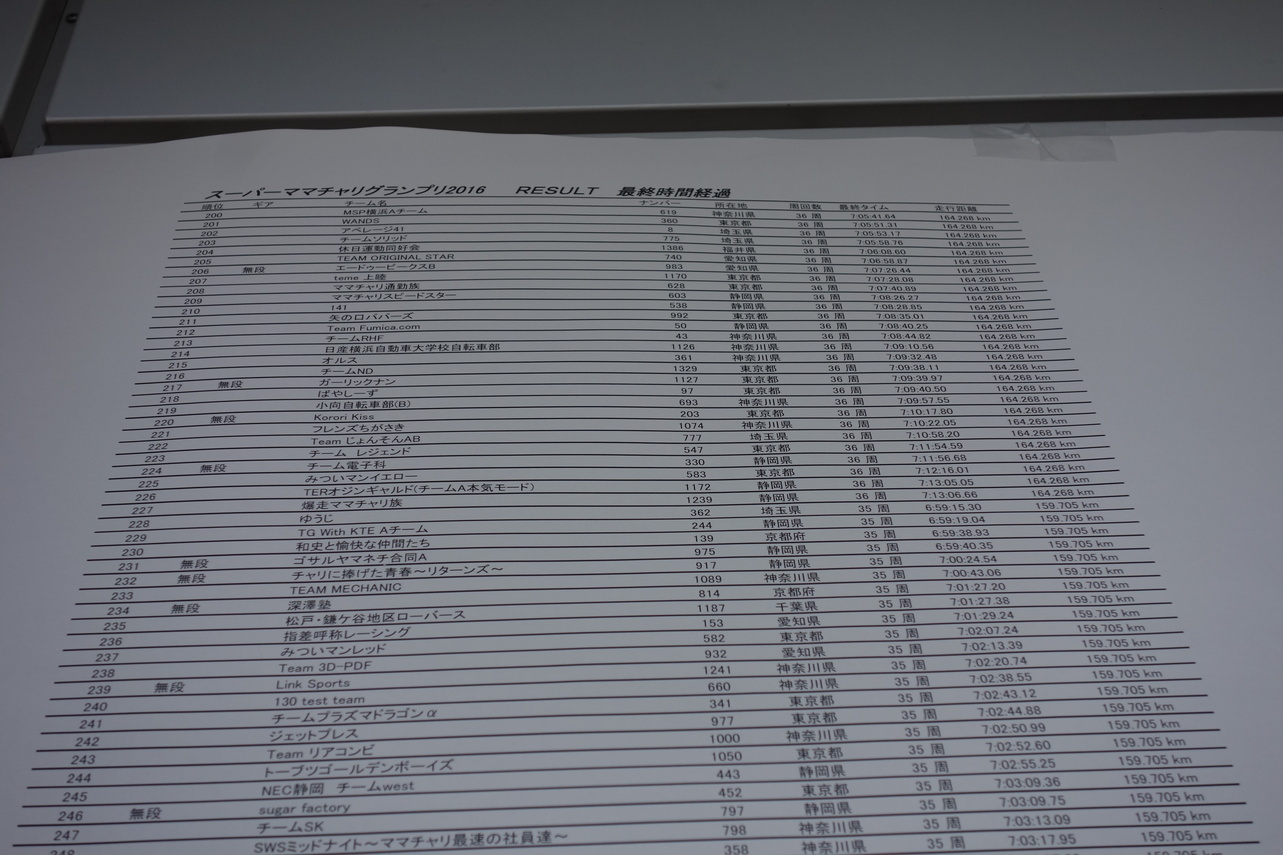 スーパーママチャリグランプリ2016 RESULT 最終時間経過
順位 ギア チーム名 ナンバー 所在地 周回数 最終タイム 走行距離
200 MSP横浜Aチーム 619 神奈川県 36 周 7:05:41.64 164.268 km
201 WANDS 360 東京都 36 周 7:05:51.31 164.268 km
202 アベレージ41 8 埼玉県 36 周 7:05:53.17 164.268 km
203 チームソリッド 775 埼玉県 36 周 7:05:58.76 164.268 km
204 休日運動同好会 1386 福井県 36 周 7:06:08.60 164.268 km
205 TEAM ORIGINAL STAR 740 愛知県 36 周 7:06:58.87 164.268 km
206 無段 エードゥービークスB 983 愛知県 36 周 7:07:26.44 164.268 km
207 teme 上陸 1170 東京都 36 周 7:07:28.08 164.268 km
208 ママチャリ通勤族 628 東京都 36 周 7:07:40.89 164.268 km
209 ママチャリスピードスター 603 静岡県 36 周 7:08:26.27 164.268 km
210 141 538 静岡県 36 周 7:08:28.85 164.268 km
211 矢のロババーズ 992 東京都 36 周 7:08:35.01 164.268 km
212 Team Fumica.com 50 静岡県 36 周 7:08:40.25 164.268 km
213 チームRHF 43 神奈川県 36 周 7:08:44.82 164.268 km
214 日産横浜自動車大学校自転車部 1126 神奈川県 36 周 7:09:10.56 164.268 km
215 オルス 361 神奈川県 36 周 7:09:32.48 164.268 km
216 チームND 1329 東京都 36 周 7:09:38.11 164.268 km
217 無段 ガーリックナン 1127 東京都 36 周 7:09:39.97 164.268 km
218 ばやしーず 97 東京都 36 周 7:09:40.50 164.268 km
219 小向自転車部(B) 693 神奈川県 36 周 7:09:57.55 164.268 km
220 無段 Korori Kiss 203 東京都 36 周 7:10:17.80 164.268 km
221 フレンズちがさき 1074 神奈川県 36 周 7:10:22.05 164.268 km
222 Team じょんそんAB 777 埼玉県 36 周 7:10:58.20 164.268 km
223 チーム レジェンド 547 東京都 36 周 7:11:54.59 164.268 km
224 無段 チーム電子科 330 静岡県 36 周 7:11:56.68 164.268 km
225 みついマンイエロー 583 東京都 36 周 7:12:16.01 164.268 km
226 TERオジンギャルド(チームA本気モード) 1172 静岡県 36 周 7:13:05.05 164.268 km
227 爆走ママチャリ族 1239 静岡県 36 周 7:13:06.66 164.268 km
228 ゆうじ 362 埼玉県 35 周 6:59:15.30 159.705 km
229 TG With KTE Aチーム 244 静岡県 35 周 6:59:19.04 159.705 km
230 和史と愉快な仲間たち 139 京都府 35 周 6:59:38.93 159.705 km
231 無段 ゴサルヤマネチ合同A 975 静岡県 35 周 6:59:40.35 159.705 km
232 無段 チャリに捧げた青春～リターンズ～ 917 静岡県 35 周 7:00:24.54 159.705 km
233 TEAM MECHANIC 1089 神奈川県 35 周 7:00:43.06 159.705 km
234 無段 深澤塾 814 京都府 35 周 7:01:27.20 159.705 km
235 松戸・鎌ケ谷地区ローバース 1187 千葉県 35 周 7:01:27.38 159.705 km
236 指差呼称レーシング 153 愛知県 35 周 7:01:29.24 159.705 km
237 みついマンレッド 582 東京都 35 周 7:02:07.24 159.705 km
238 Team 3D-PDF 932 愛知県 35 周 7:02:13.39 159.705 km
239 無段 Link Sports 1241 神奈川県 35 周 7:02:20.74 159.705 km
240 130 test team 660 神奈川県 35 周 7:02:38.55 159.705 km
241 チームプラズマドラゴンα 341 東京都 35 周 7:02:43.12 159.705 km
242 ジェットプレス 977 東京都 35 周 7:02:44.88 159.705 km
243 Team リアコンビ 1000 神奈川県 35 周 7:02:50.99 159.705 km
244 トーブツゴールデンボーイズ 1050 東京都 35 周 7:02:52.60 159.705 km
245 NEC静岡 チームwest 443 静岡県 35 周 7:02:55.25 159.705 km
246 無段 sugar factory 452 東京都 35 周 7:03:09.36 159.705 km
247 チームSK 797 静岡県 35 周 7:03:09.75 159.705 km
248 SWSミッドナイト～ママチャリ最速の社員達～ 798 神奈川県 35 周 7:03:13.09 159.705 km
358 静岡県 35 周 7:03:17.95 159.705 km